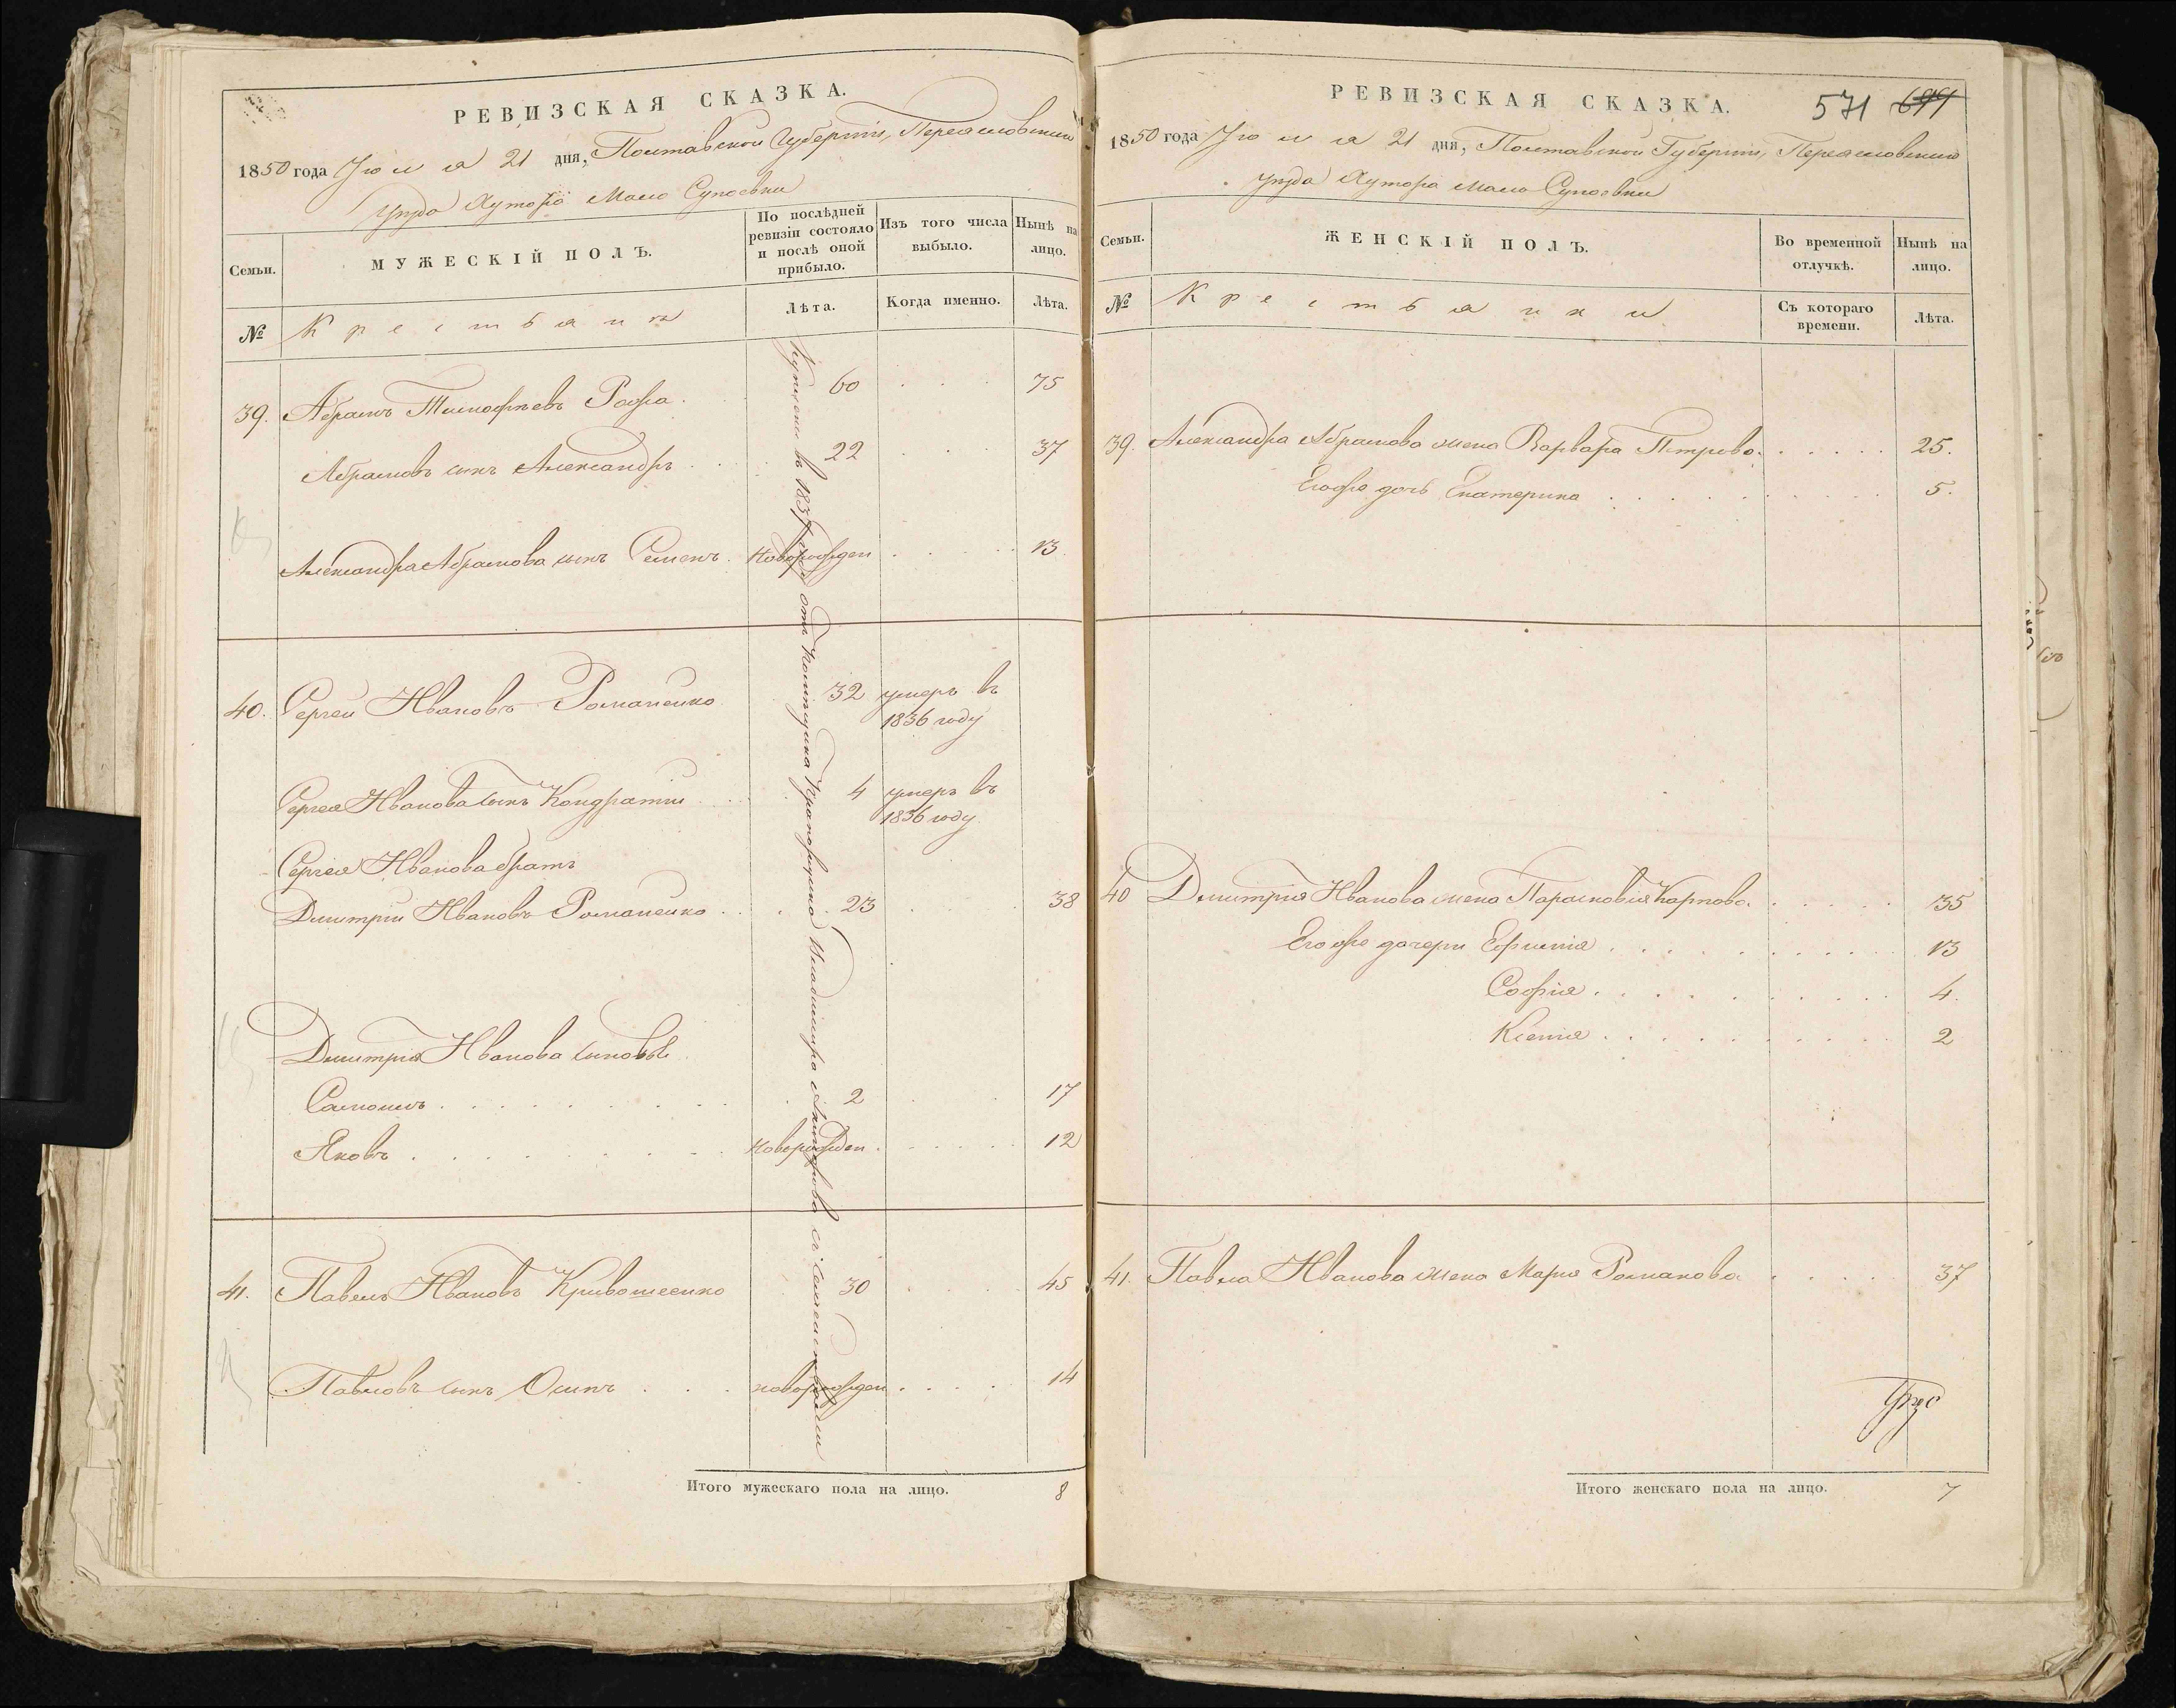 РЕВИЗСКАЯ СКАЗКА.
1850 года Іюля 21 дня, Полтавской Губерніи, Переяславскаго
уѣзда Хутора Мало Супоевки
Семьи.
МУЖЕСКІЙ ПОЛЪ.
По послѣдней ревизіи состояло и послѣ оной прибыло.
Изъ того числа выбыло.
Нынѣ на лицо.
№
Крестьяне
Лѣта.
Когда именно.
Лѣта.
39. Абрамъ Тимофѣевъ Рофа . 60 75
Абрамовъ сынъ Александръ . . 22 37
Александра Абрамова сынъ Семенъ . Новорожден 13
40. Сергей Ивановъ Романенко 32 умеръ въ
1836 году
Сергея Иванова сынъ Кондратій 4 умеръ въ
1836 году
Сергея Иванова братъ
Дмитрій Ивановъ Романенко . . 23 38
Дмитрія Иванова сыновья
Самоилъ . . . 2 17
Яковъ . . . Новорожден 12
41. Павелъ Ивановъ Кривошеенко 30 45
Павловъ сынъ Осипъ . . . новорожден 14
Куплены въ 1837 году отъ помѣщика Прапорщика Владимира с семействами
Итого мужескаго пола на лицо. 8
РЕВИЗСКАЯ СКАЗКА.
571 699
1850 года Іюля 21 дня, Полтавской Губерніи, Переяславскаго
уѣзда Хутора Мало Супоевки
Семьи.
ЖЕНСКІЙ ПОЛЪ.
Во временной отлучкѣ.
Нынѣ на лицо.
№
Крестьянки
Съ котораго времени.
Лѣта.
39. Александра Абрамова жена Варвара Петрова 25.
Егоже дочь Екатерина 5.
40 Дмитрія Иванова жена Парасковія Карпова 35
Егоже дочери Ефимія 13
Софія 4.
Ксенія 2
41. Павла Иванова жена Марія Романова 37
Итого женскаго пола на лицо. 7